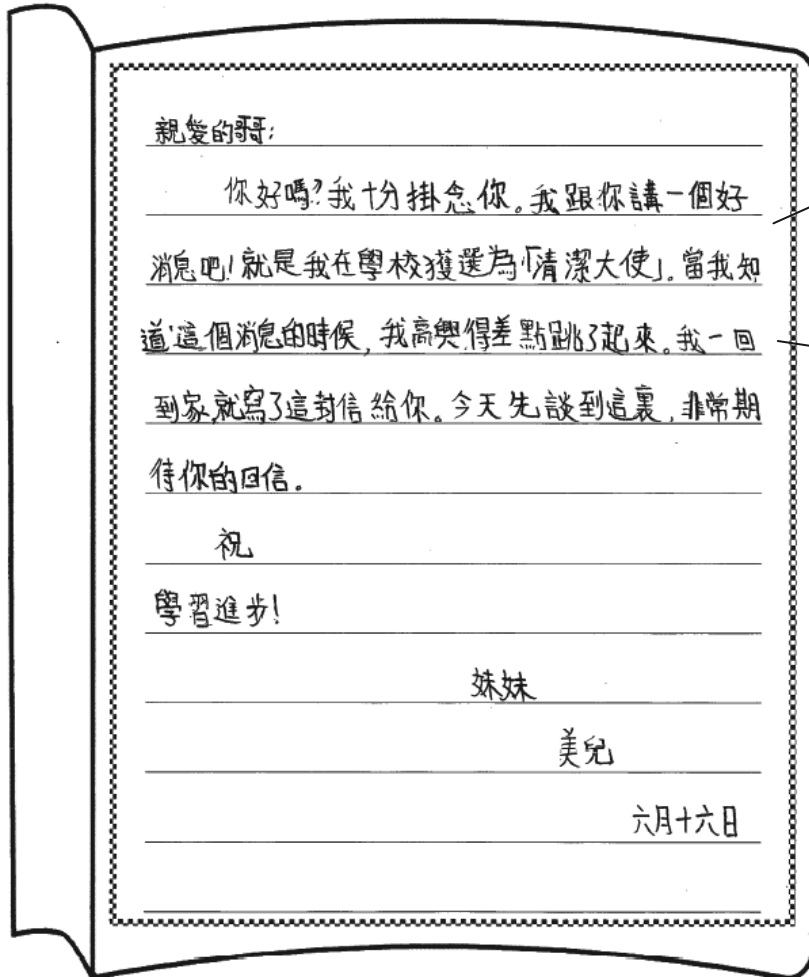 親愛的哥哥:
你好嗎?我十分掛念你。我跟你講一個好
消息吧!就是我在學校獲選為「清潔大使」. 當我知
道這個消息的時候, 我高興得差點跳了起來。我一回
到家,就寫了這封信給你。今天先談到這裏, 非常期
待你的回信。
祝
學習進步!
妹妹
美兒
六月十六日